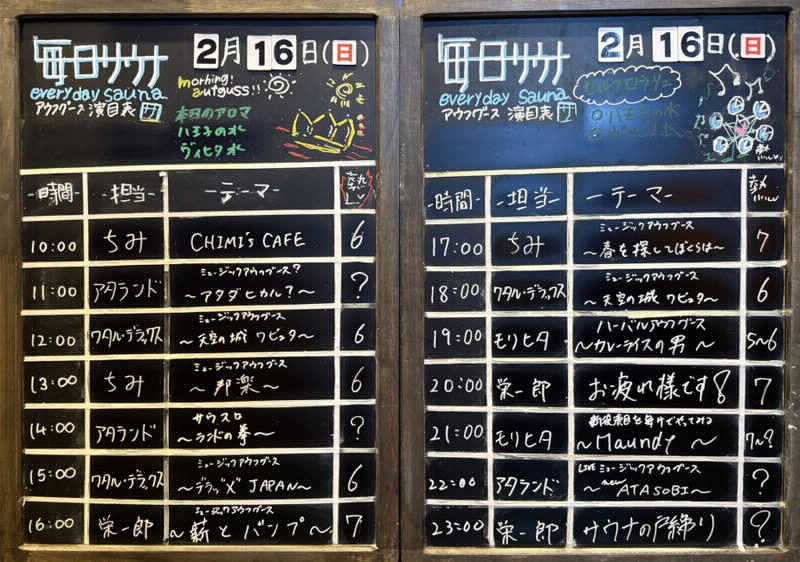 毎日サウナ 2月16日(日)
everyday sauna
アウフグース 演目表
morning!
autguss!!
本日のアロマ
八王子の水
ヴィヒタ水
時間 担当 テーマ 熱
10:00 ちみ CHIMI's CAFE 6
ミュージックアウフグース?
11:00 アタランド 〜アタダヒカル?〜 ?
ミュージックアウフグース
12:00 ワタル・デラックス 〜天空の城 ワピュタ〜 6
ミュージックアウフグース
13:00 ちみ 〜邦楽〜 6
サウスロ
14:00 アタランド 〜ランドの拳〜 ?
ミュージックアウフグース
15:00 ワタル・デラックス 〜デラッ"X" JAPAN〜 6
ミュージックアウフグース
16:00 栄一郎 〜薪とバンプ〜 7
毎日サウナ 2月16日(日)
everyday sauna
アウフグース 演目表
八王子の水
時間 担当 テーマ 熱
ミュージックアウフグース
17:00 ちみ 〜春を探してぼくらは〜 7
ミュージックアウフグース
18:00 ワタル・デラックス 〜天空の城 ワピュタ〜 6
ハーバルアウフグース
19:00 モリヒタ 〜カレーライスの男〜 5〜6
20:00 栄一郎 お疲れ様です! 7
21:00 モリヒタ 〜Maundy〜 7〜?
LIVE ミュージックアウフグース
22:00 アタランド 〜new ATASOBI〜 ?
23:00 栄一郎 サウナの戸締り ?